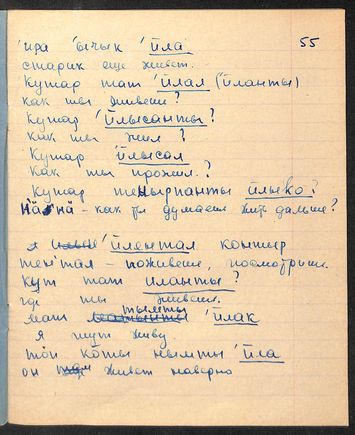 55
ира ӹчык 'ӣла
старик еще живет.
Кутар тат 'ӣлал (ӣланты)
как ты живешь?
Кутар 'ӣлысанты?
как ты жил?
Кутар ӣлысал
как ты прожил?
Кутар тенырпанты ӣлыко?
как ты думаешь жить дальше?
'ӣлентал контыр
тентал - поживешь, посмотришь.
Кут тат иланты?
где ты живешь.
мат тымты 'ӣлак
я тут живу
тӧп кӧты нымты 'ӣла
он живет наверно